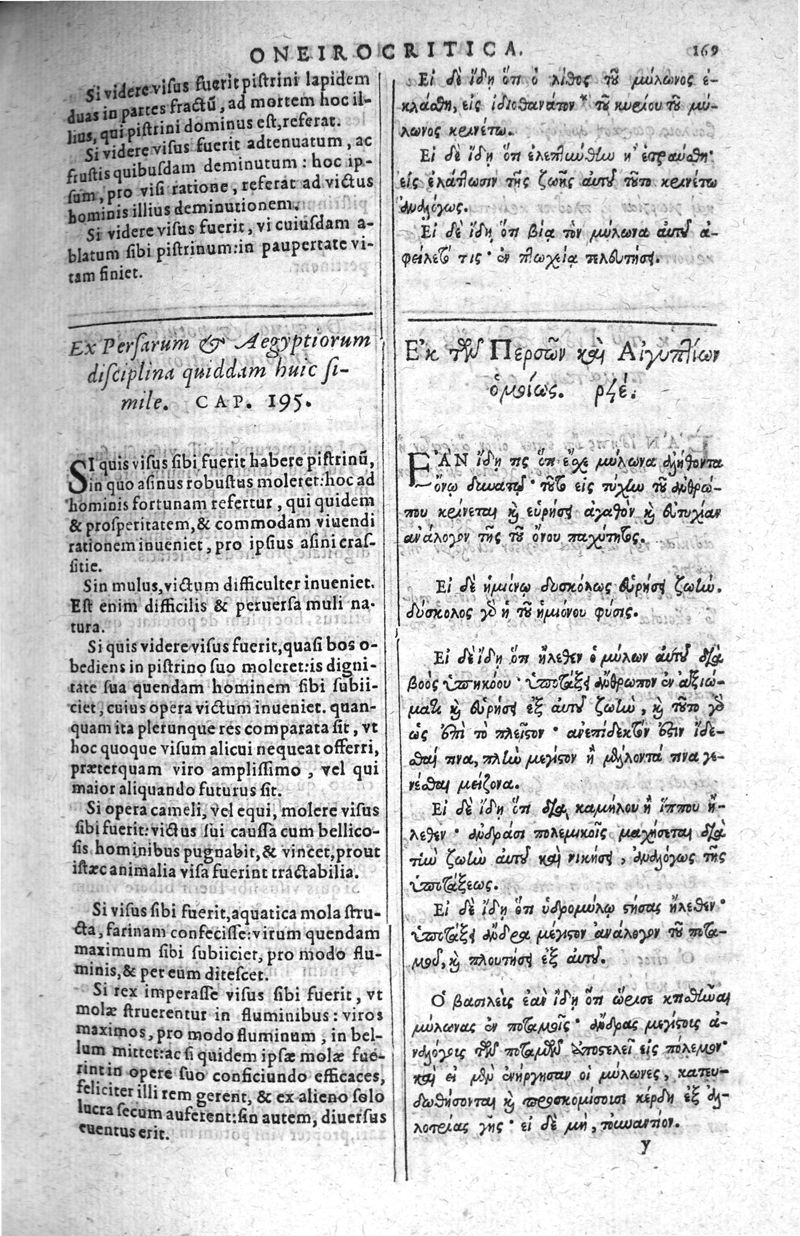 ONEIROCRITICA. 169
Si videre visus fuerit pistrini lapidem
duas in partes fractũ, ad mortem hoc il-
lius, qui pistrini dominus est, referat.
Si videre visus fuerit adtenuatum, ac
frustis quibusdam deminutum: hoc ip-
sum, pro visi ratione, referat ad victus
hominis illius deminutionem.
Si videre visus fuerit, vi cuiusdam a-
blatum sibi pistrinum: in paupertate vi-
tam finiet.
Ex Persarum & Aegyptiorum
disciplina quiddam huic si-
mile. CAP. 195.
SI quis visus sibi fuerit habere pistrinũ,
in quo asinus robustus moleret: hoc ad
hominis fortunam refertur, qui quidem
& prosperitatem, & commodam viuendi
rationem inueniet, pro ipsius asini cras-
sitie.
Sin mulus, victum difficulter inueniet.
Est enim difficilis & peruersa muli na-
tura.
Si quis videre visus fuerit, quasi bos o-
bediens in pistrino suo moleret: is digni-
tate sua quendam hominem sibi subii-
ciet, cuius opera victum inueniet. quan-
quam ita plerunque res comparata sit, vt
hoc quoque visum alicui nequeat offerri,
præterquam viro amplissimo, vel qui
maior aliquando futurus sit.
Si opera cameli, vel equi, molere visus
sibi fuerit: victus sui caussa cum bellico-
sis hominibus pugnabit, & vincet, prout
istæc animalia visa fuerint tractabilia.
Si visus sibi fuerit, aquatica mola stru-
cta, farinam confecisse: virum quendam
maximum sibi subiiciet, pro modo flu-
minis, & per eum ditescet.
Si rex imperasse visus sibi fuerit, vt
molæ struerentur in fluminibus: viros
maximos, pro modo fluminum, in bel-
lum mittet: ac si quidem ipsæ molæ fue-
rint in opere suo conficiundo efficaces,
feliciter illi rem gerent, & ex alieno solo
lucra secum auferent: sin autem, diuersus
euentus erit.
Εἰ δὲ ἴδῃ ὅτι ὁ λίθος τοῦ μύλωνος ἐ-
κλάσθη, εἰς ἰδιοθάνατον τοῦ κυρίου τοῦ μύ-
λωνος κρινέτω.
Εἰ δὲ ἴδῃ ὅτι ἐλεπτύνθη ἢ ἐτραύσθη·
εἰς ἐλάττωσιν τῆς ζωῆς αὐτοῦ τοῦτο κρινέτω
ἀναλόγως.
Εἰ δὲ ἴδῃ ὅτι βίᾳ τὸν μύλωνα αὐτοῦ ἀ-
φείλετό τις· ἐν πτωχείᾳ τελευτήσει.
Ἐκ τῶν Περσῶν καὶ Αἰγυπτίων
ὁμοίως. ρζέ.
ΕΑΝ ἴδῃ τις ὅτι ἔχει μύλωνα ἀλήθοντα
ὄνῳ δυνατῷ· τοῦτο εἰς τύχην τοῦ ἀνθρώ-
που κρίνεται καὶ εὑρήσει ἀγαθὸν καὶ εὐτυχίαν
ἀνάλογον τῆς τοῦ ὄνου παχύτητος.
Εἰ δὲ ἡμιόνῳ δυσκόλως εὑρήσει ζωήν.
δύσκολος γὰρ ἡ τοῦ ἡμιόνου φύσις.
Εἰ δὲ ἴδῃ ὅτι ἤλεθεν ὁ μύλων αὐτοῦ διὰ
βοὸς ὑπηκόου· ὑποτάξει ἄνθρωπον ἐν ἀξιώ-
ματι καὶ εὑρήσει ἐξ αὐτοῦ ζωήν, καὶ τοῦτο γὰρ
ὡς ἐπὶ τὸ πλεῖστον· ἀνεπίδεκτόν ἐστιν ἰδέ-
σθαι τινα, πλὴν μέγιστον ἢ μέλλοντά τινα γε-
νέσθαι μείζονα.
Εἰ δὲ ἴδῃ ὅτι διὰ καμήλου ἢ ἵππου ἤ-
λεθεν· ἀνδράσι πολεμικοῖς μαχήσεται διὰ
τὴν ζωὴν αὐτοῦ καὶ νικήσει, ἀναλόγως τῆς
ὑποτάξεως.
Εἰ δὲ ἴδῃ ὅτι ὑδρομύλῳ στήσας ἤλεθεν·
ὑποτάξει ἄνδρα μέγιστον ἀνάλογον τοῦ ποτα-
μοῦ, καὶ πλουτήσει ἐξ αὐτοῦ.
Ὁ βασιλεὺς ἐὰν ἴδῃ ὅτι ὥρισε κτισθῆναι
μύλωνας ἐν ποταμοῖς· ἄνδρας μεγίστους ἀ-
ναλόγους τῶν ποταμῶν ἀποστελεῖ εἰς πόλεμον·
καὶ εἰ μὲν ἐνήργησαν οἱ μύλωνες, κατευ-
οδωθήσονται καὶ προσκομίσουσι κέρδη ἐξ ἀλ-
λοτρίας γῆς· εἰ δὲ μή, τοὐναντίον.
y